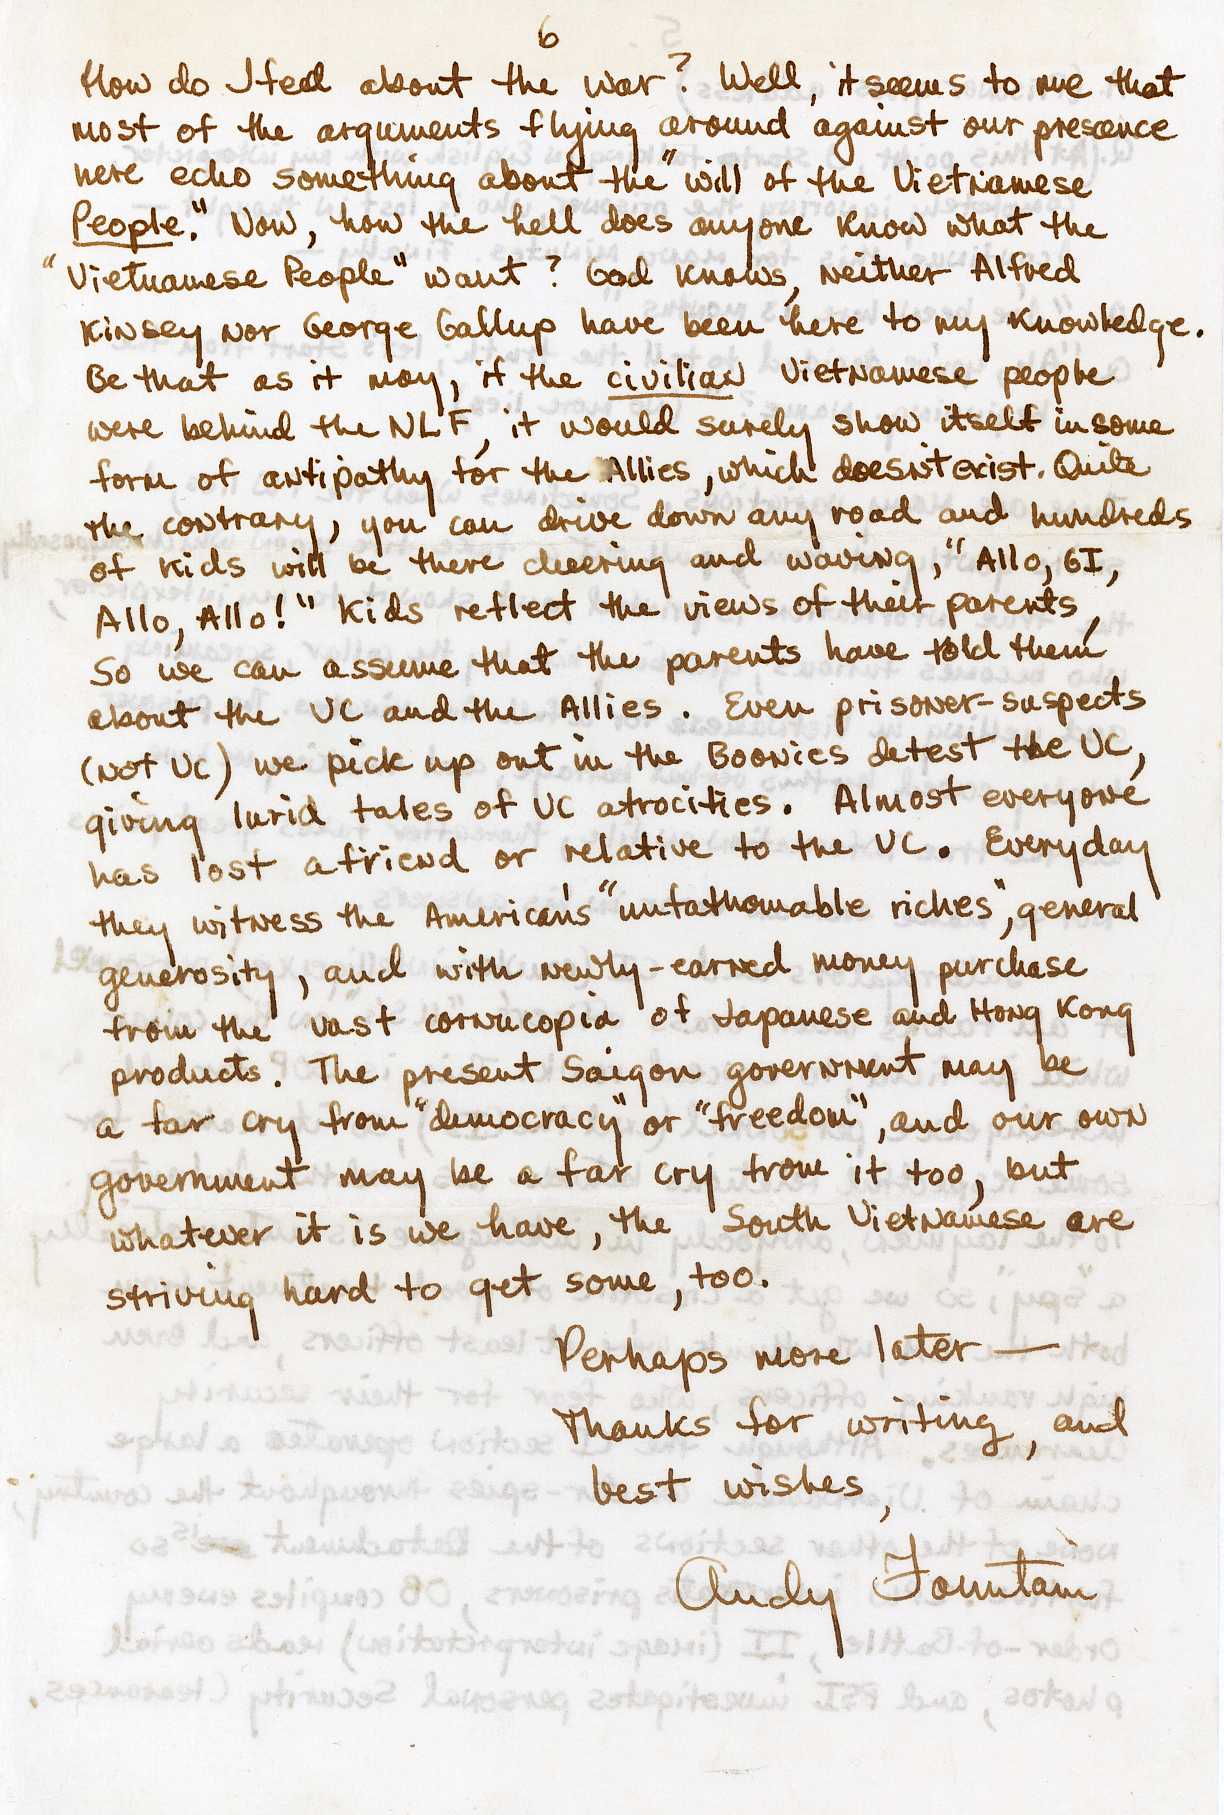 6
How do I feel about the war? Well, it seems to me that
most of the arguments flying around against our presence
here echo something about the "will of the Vietnamese
People." Now, how the hell does anyone know what the
"Vietnamese People" want? God knows, neither Alfred
Kinsey nor George Gallup have been here to my knowledge.
Be that as it may, if the civilian Vietnamese people
were behind the NLF, it would surely show itself in some
form of antipathy for the Allies, which doesn't exist. Quite
the contrary, you can drive down any road and hundreds
of kids will be there cheering and waving, "Allo, GI,
Allo, Allo!" Kids reflect the views of their parents,
so we can assume that the parents have told them
about the VC and the Allies. Even prisoner-suspects
(not VC) we pick up out in the Boonies detest the VC,
giving lurid tales of VC atrocities. Almost everyone
has lost a friend or relative to the VC. Everyday
they witness the American's "unfathomable riches", general
generosity, and with newly-earned money purchase
from the vast cornucopia of Japanese and Hong Kong
products. The present Saigon government may be
a far cry from "democracy" or "freedom", and our own
government may be a far cry from it too, but
whatever it is we have, the South Vietnamese are
striving hard to get some, too.
Perhaps more later —
Thanks for writing, and
best wishes,
Andy Fountain